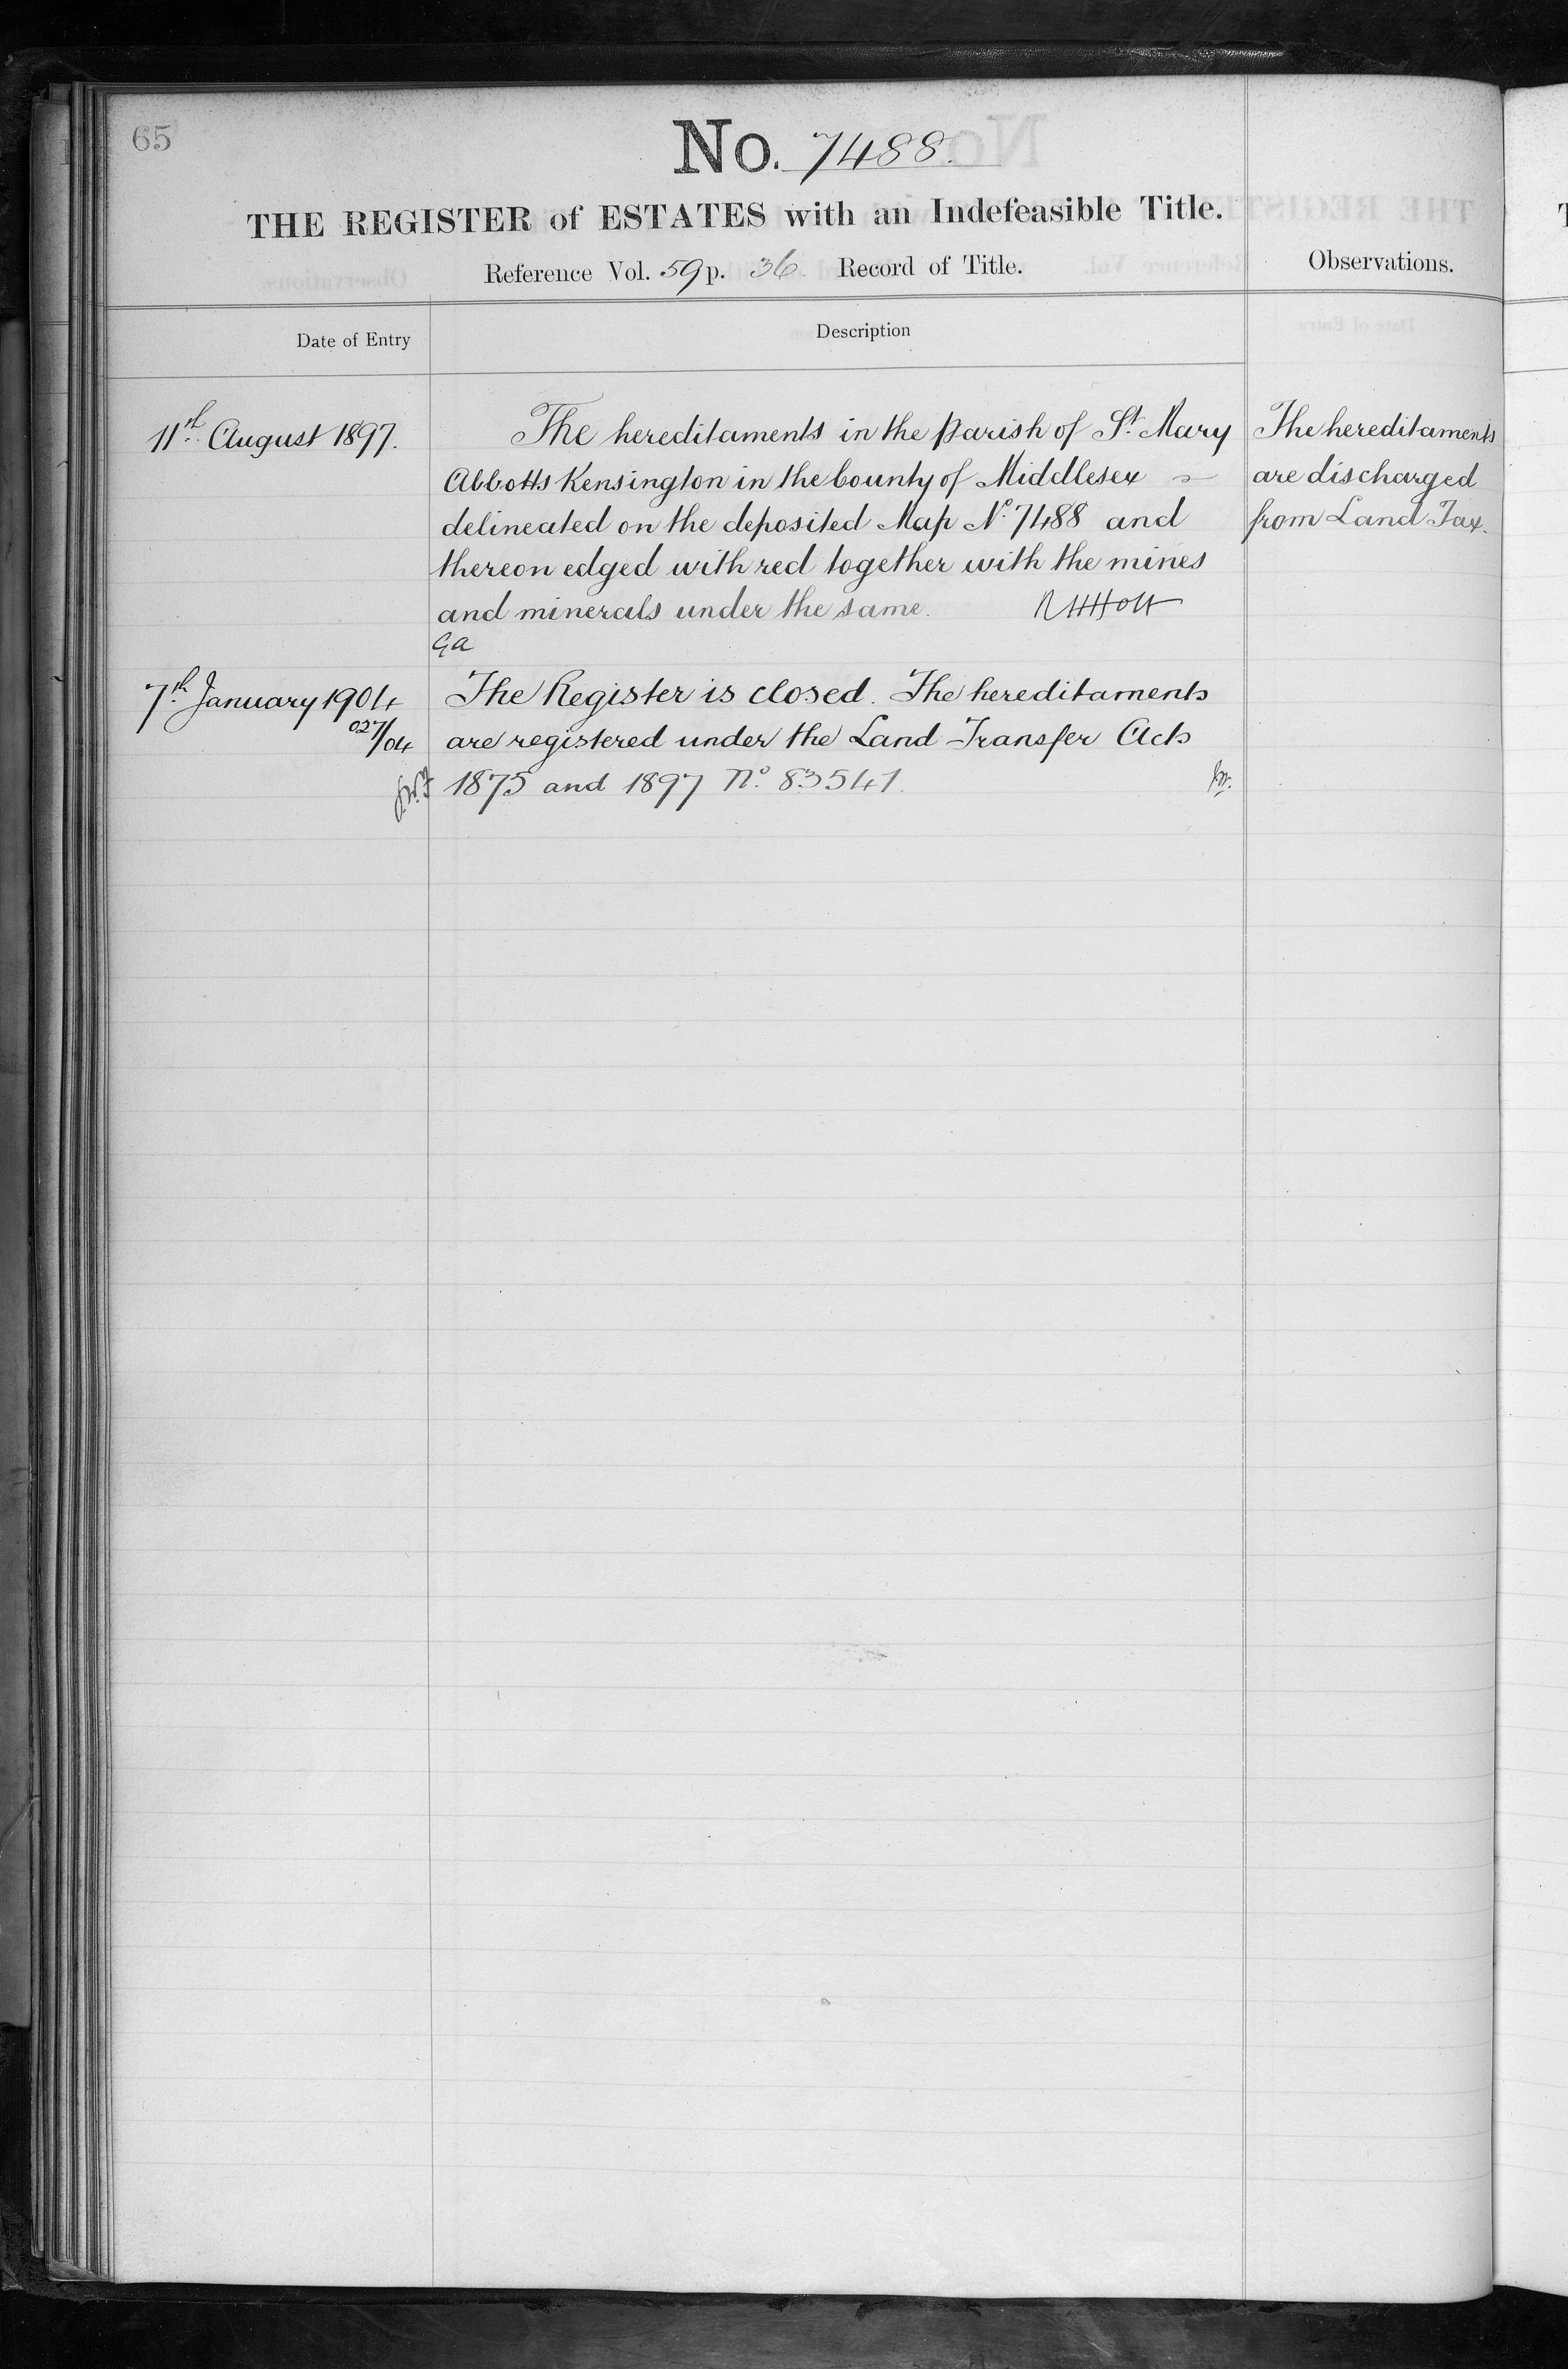 65
No. 7488.
THE REGISTER of ESTATES with an Indefeasible Title.
Reference Vol. 59 p. 36 Record of Title.
Observations.
Date of Entry
Description
11th August 1897.
The hereditaments in the parish of St. Mary
Abbotts Kensington in the County of Middlesex
delineated on the deposited Map No. 7488 and
thereon edged with red together with the mines
and minerals under the same. RHHolt
GA
The hereditaments
are discharged
from Land Tax.
7th January 1904
027/04
The Register is closed. The hereditaments
are registered under the Land Transfer Acts
1875 and 1897 No. 83541.